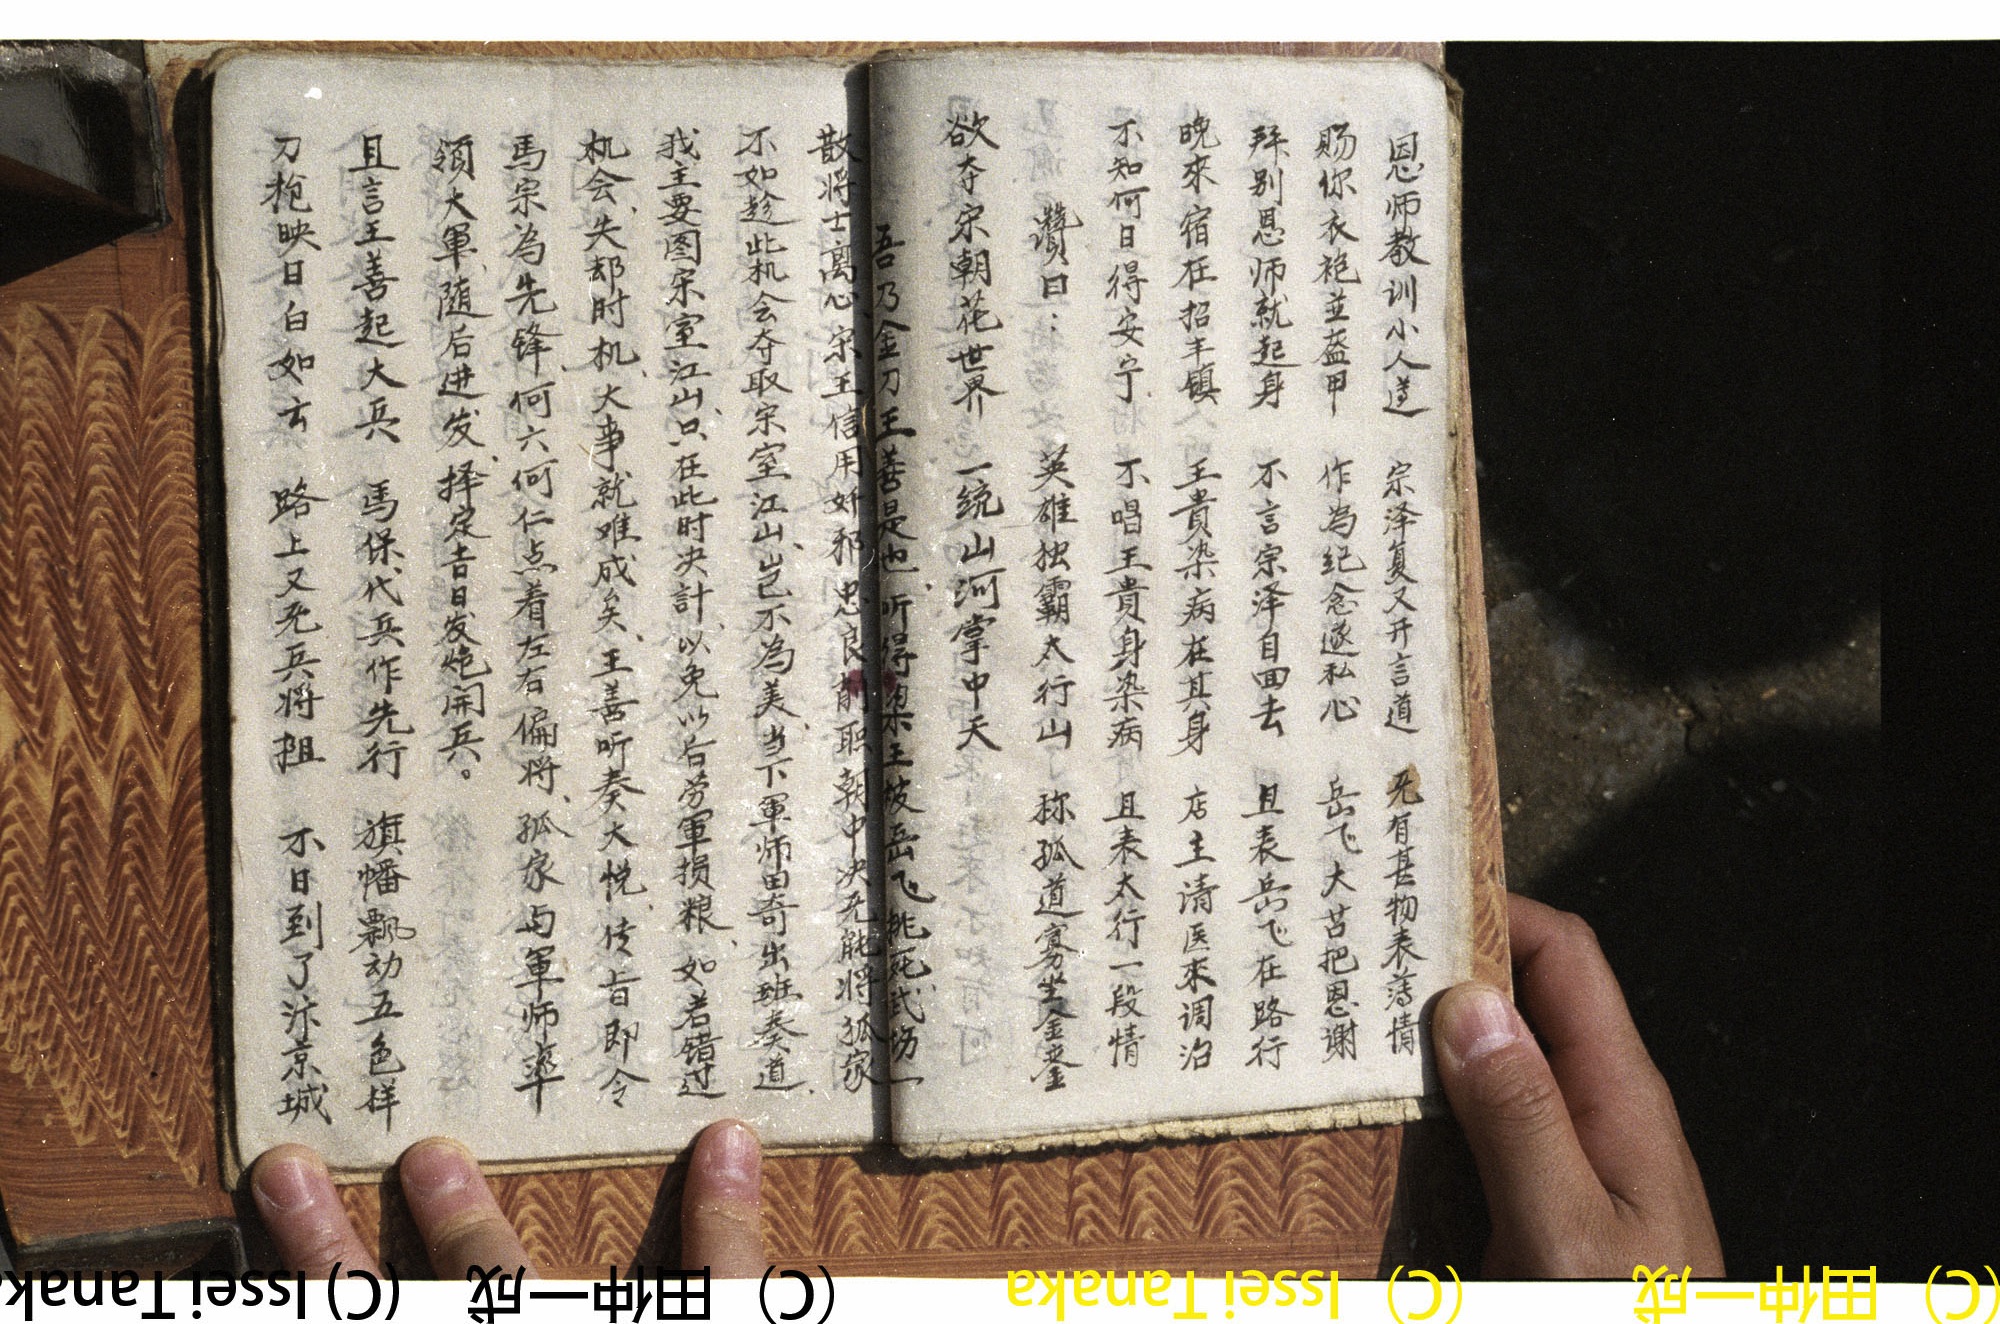 恩师教训小人遵 宗泽复又开言道 无有甚物表薄情
赐你衣袍並盔甲 作为纪念遂私心 岳飞大苦把恩谢
拜别恩师就起身 不言宗泽自回去 且表岳飞在路行
晚來宿在招丰镇 王貴染病在其身 店主清医來调治
不知何日得安宁 不唱王貴身染病 且表太行一段情
讚曰： 英雄独霸太行山 称孤道寡坐金銮
欲夺宋朝花世界 一统山河掌中天
吾乃金刀王善是也、听得梁王被岳飞挑死武场一
散将士离心、宋王信用奸邪、忠良削职、朝中决无能将、孤家
不如趁此机会夺取宋室江山、岂不為美、当下軍师田奇出班奏道、
我主要图宋室江山、只在此时决計、以免以后劳軍损粮、如若错过
机会、失却时机、大事就难成矣、王善听奏大悦、传旨即令
馬宗為先锋、何六何仁点着左右偏将、孤家与軍师率
領大軍、随后进发、择定吉日发炮開兵。
且言王善起大兵 馬保、代兵作先行 旗幡飄动五色样
刀枪映日白如云 路上又无兵将阻 不日到了汴京城
(C) Issei Tanaka (C) 田仲一成
(C) Issei Tanaka (C) 田仲一成